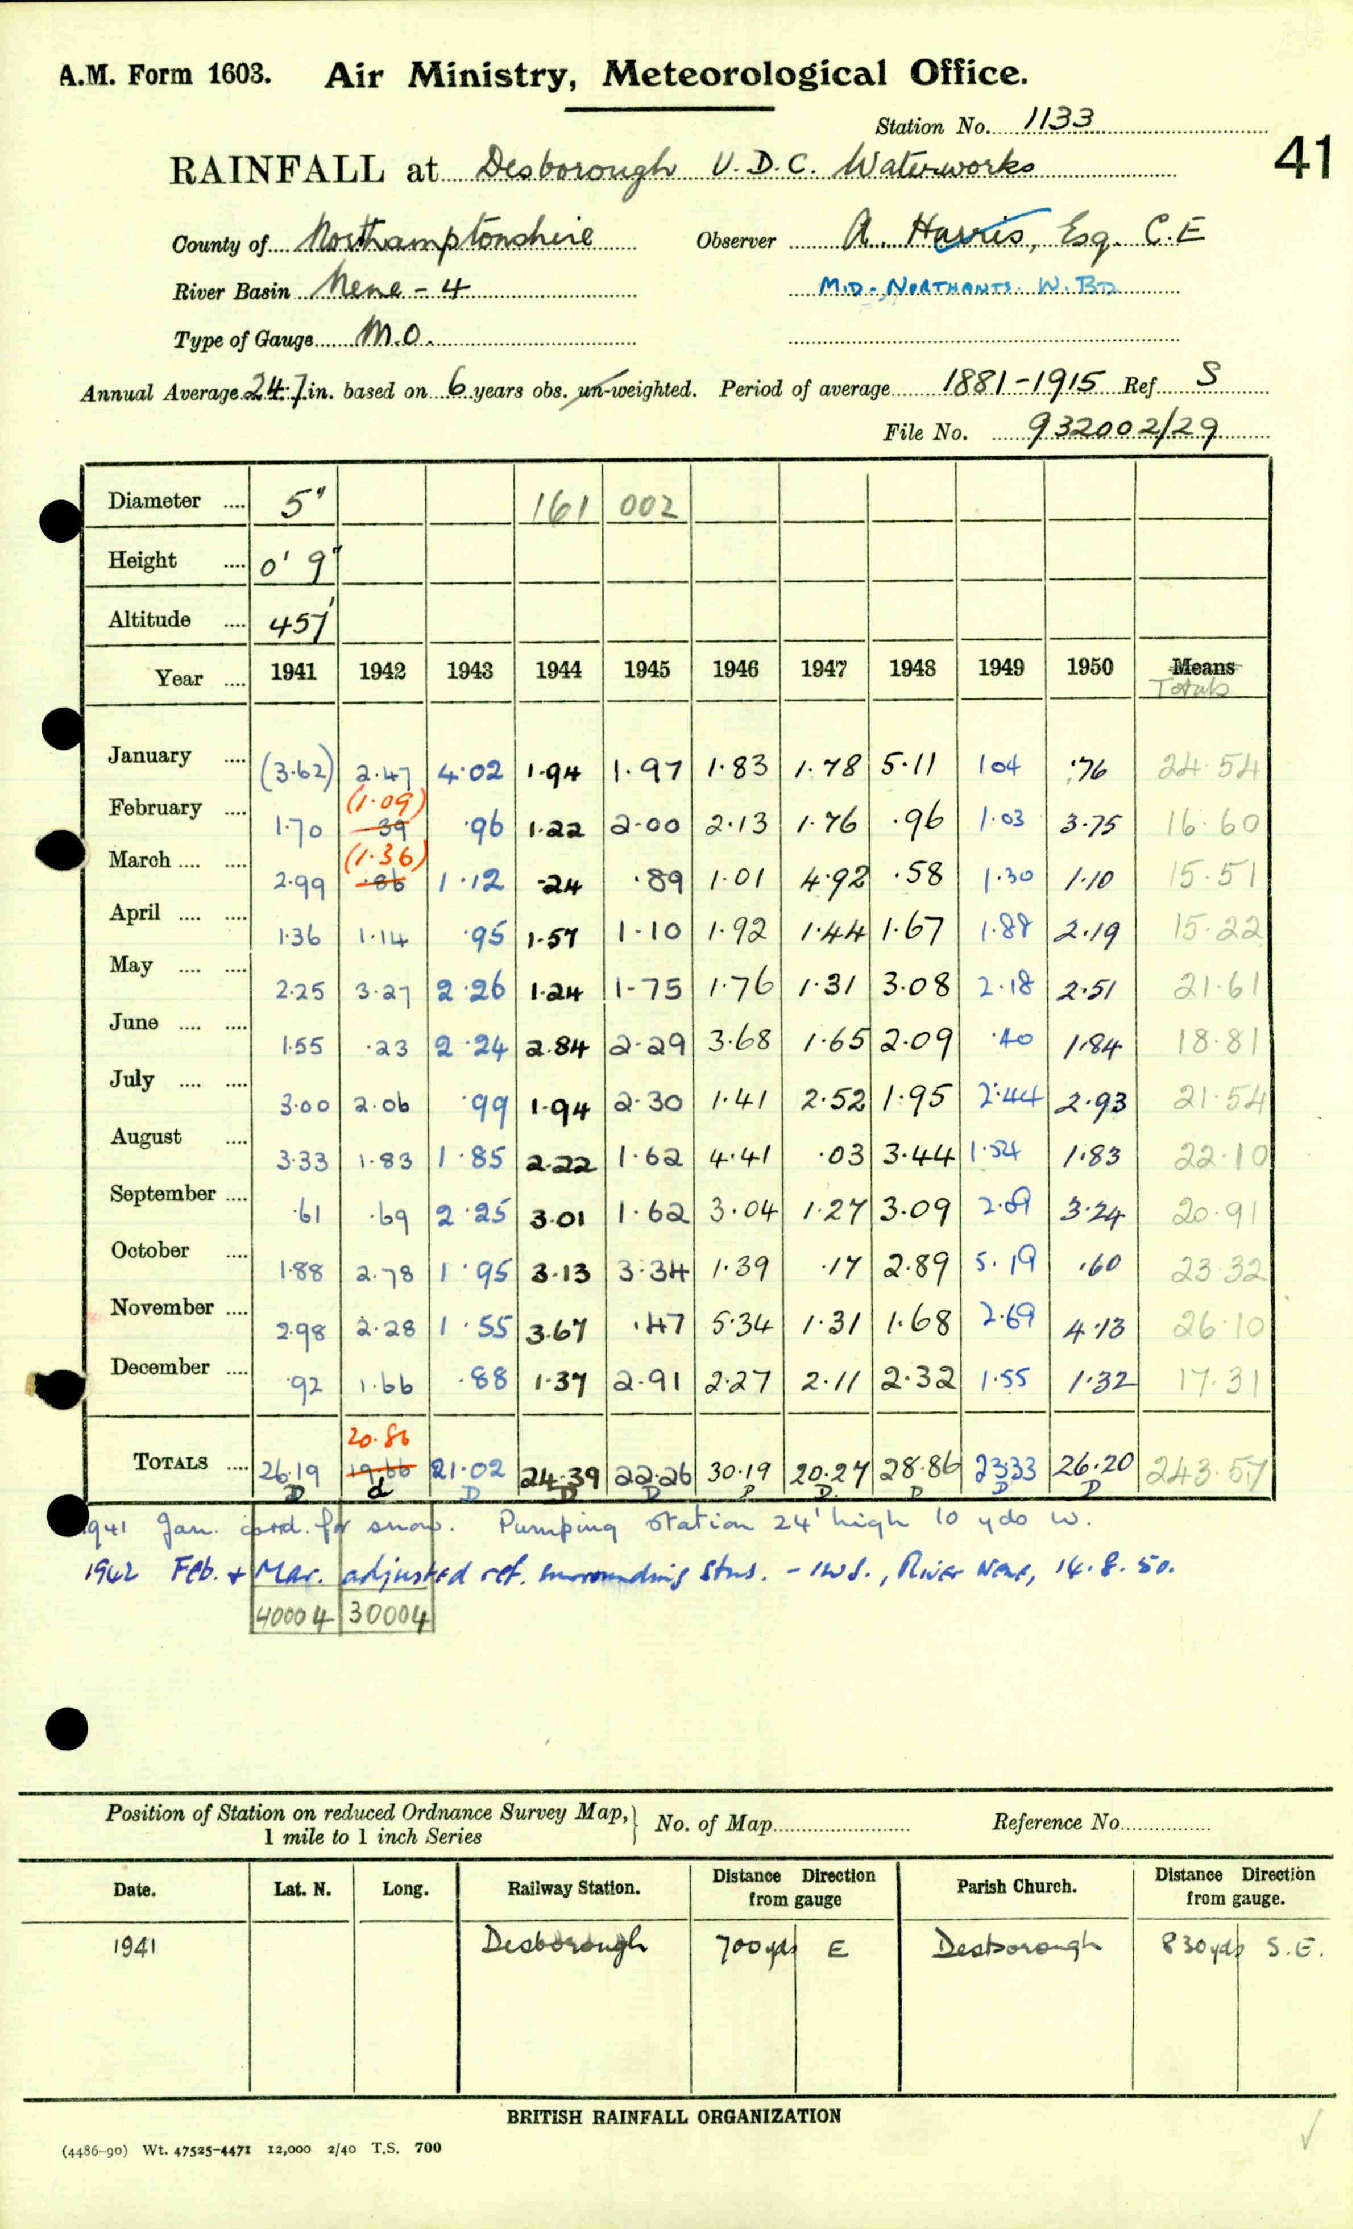 A.M. Form 1603. Air Ministry, Meteorological Office.
Station No. 1133
41
RAINFALL at Desborough U.D.C. Waterworks
County of Northamptonshire Observer A. Harris, Esq. C.E
River Basin Nene - 4 MID-NORTHANTS. W. BD
Type of Gauge M.O.
Annual Average 24.7 in. based on 6 years obs. un-weighted. Period of average 1881-1915 Ref S
File No. 932002/29
Diameter .... 5" 161 002
Height .... 0' 9"
Altitude .... 457'
Year .... 1941 1942 1943 1944 1945 1946 1947 1948 1949 1950 Means
Totals
January .... (3.62) 2.47 4.02 1.94 1.97 1.83 1.78 5.11 1 04 .76 24.54
(1.09)
February .... 1.70 39 .96 1.22 2.00 2.13 1.76 .96 1.03 3.75 16.60
(1.36)
March .... .... 2.99 .86 1.12 .24 .89 1.01 4.92 .58 1.30 1.10 15.51
April .... .... 1.36 1.14 .95 1.57 1.10 1.92 1.44 1.67 1.88 2.19 15.22
May .... .... 2.25 3.27 2.26 1.24 1.75 1.76 1.31 3.08 2.18 2.51 21.61
June .... .... 1.55 .23 2.24 2.84 2.29 3.68 1.65 2.09 .40 1.84 18.81
July .... .... 3.00 2.06 .99 1.94 2.30 1.41 2.52 1.95 2.44 2.93 21.54
August .... 3.33 1.83 1.85 2.22 1.62 4.41 .03 3.44 1.54 1.83 22.10
September .... .61 .69 2.25 3.01 1.62 3.04 1.27 3.09 2.09 3.24 20.91
October .... 1.88 2.78 1.95 3.13 3.34 1.39 .17 2.89 5.19 .60 23.32
November .... 2.98 2.28 1.55 3.67 .47 5.34 1.31 1.68 2.69 4.13 26.10
December .... .92 1.66 .88 1.37 2.91 2.27 2.11 2.32 1.55 1.32 17.31
20.86
TOTALS .... 26.19 19.66 21.02 24.39 22.26 30.19 20.27 28.86 23.33 26.20 243.57
D d D D D D D D D D
1941 Jan. corrd. for snow. Pumping station 24' high 10 yds W.
1942 Feb. + Mar. adjusted ref. surrounding stns. - IWS., River Nene, 14.8.50.
40004 30004
Position of Station on reduced Ordnance Survey Map, } No. of Map Reference No.
1 mile to 1 inch Series
Date. Lat. N. Long. Railway Station. Distance Direction from gauge Parish Church. Distance Direction from gauge.
1941 Desborough 700 yds E Desborough 830 yds S.E.
BRITISH RAINFALL ORGANIZATION
(4486-90) Wt. 47525-4471 12,000 2/40 T.S. 700